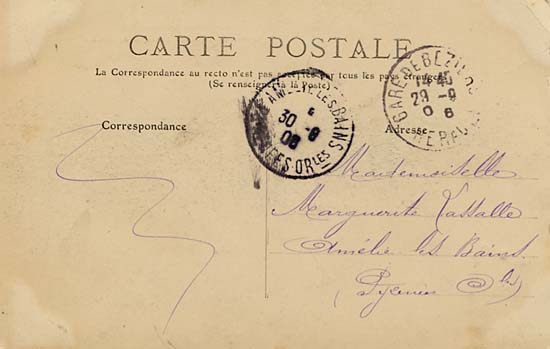 CARTE POSTALE
La Correspondance au recto n'est pas acceptée par tous les pays étrangers
(Se renseigner à la Poste)
Correspondance
Adresse
AMÉLIE-LES-BAINS
30 -9
06
PYRÉNÉES-OR^LES
GARE DE BEZIERS
14 45
29 -9
06
HERAULT
Mademoiselle
Marguerite Lassalle
Amélie les Bains
(Pyrénées O^les)